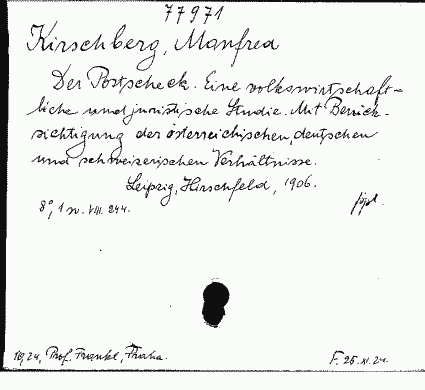 77971
Kirschberg, Manfred
Der Postscheck. Eine volkswirtschaft-
liche und juristische Studie. Mit Berück-
sichtigung der österreichischen, deutschen
und schweizerischen Verhältnisse.
Leipzig, Hirschfeld, 1906.
8°, 1 w. VIII. 244.
1924, Prof. Frankl, Praha.
F. 25.XI.24.